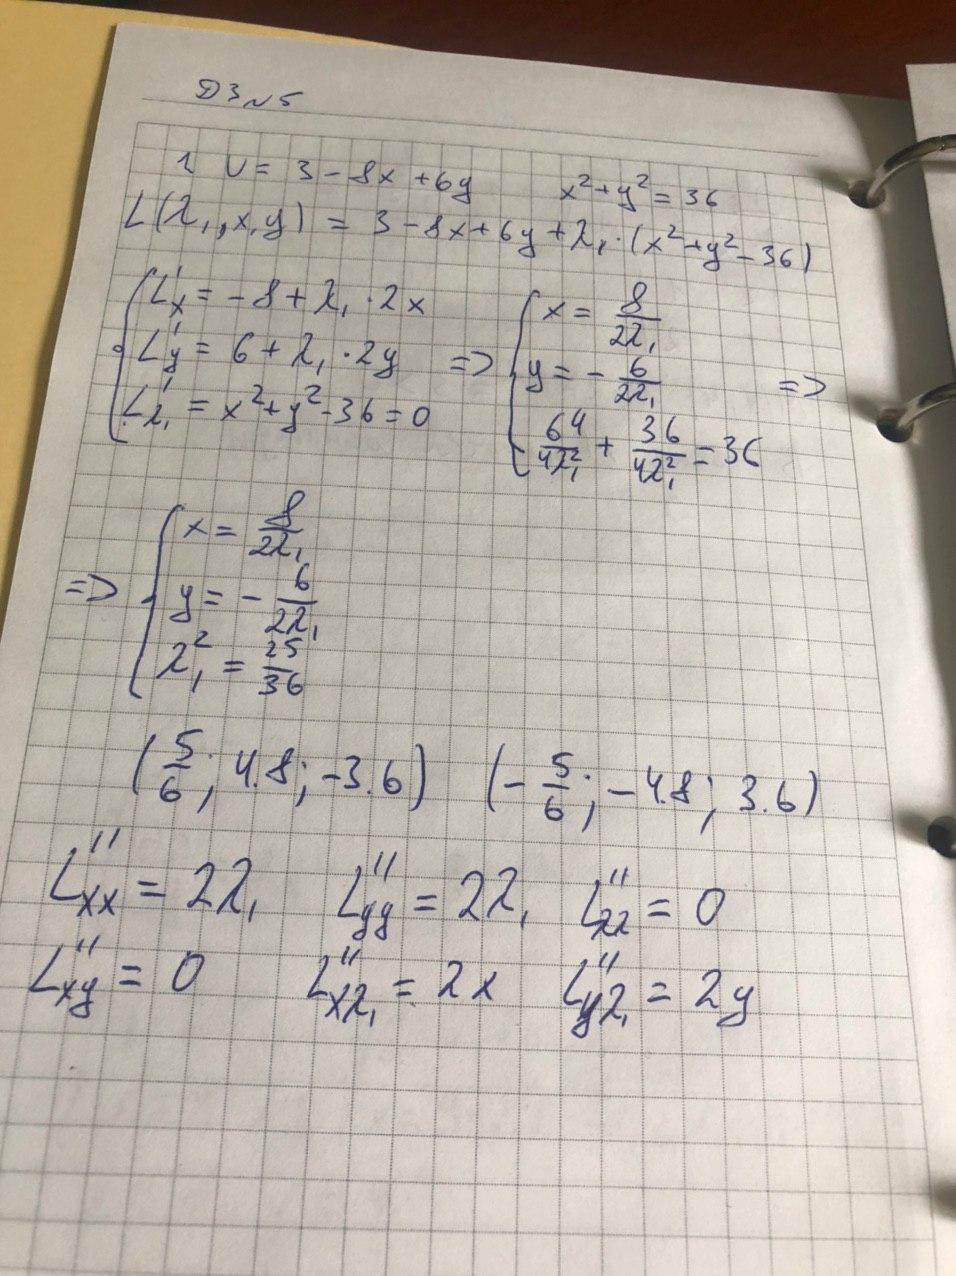 ДЗ №5
1. U = 3 - 8x + 6y x² + y² = 36
L(λ₁, x, y) = 3 - 8x + 6y + λ₁ · (x² + y² - 36)
{ L'x = -8 + λ₁ · 2x
L'y = 6 + λ₁ · 2y
L'λ₁ = x² + y² - 36 = 0
=> { x = 8/2λ₁
y = - 6/2λ₁
64/4λ₁² + 36/4λ₁² = 36 =>
=> { x = 8/2λ₁
y = - 6/2λ₁
λ₁² = 25/36
(5/6; 4.8; -3.6) (-5/6; -4.8; 3.6)
L''xx = 2λ₁ L''yy = 2λ₁ L''λλ = 0
L''xy = 0 L''xλ₁ = 2x L''yλ₁ = 2y